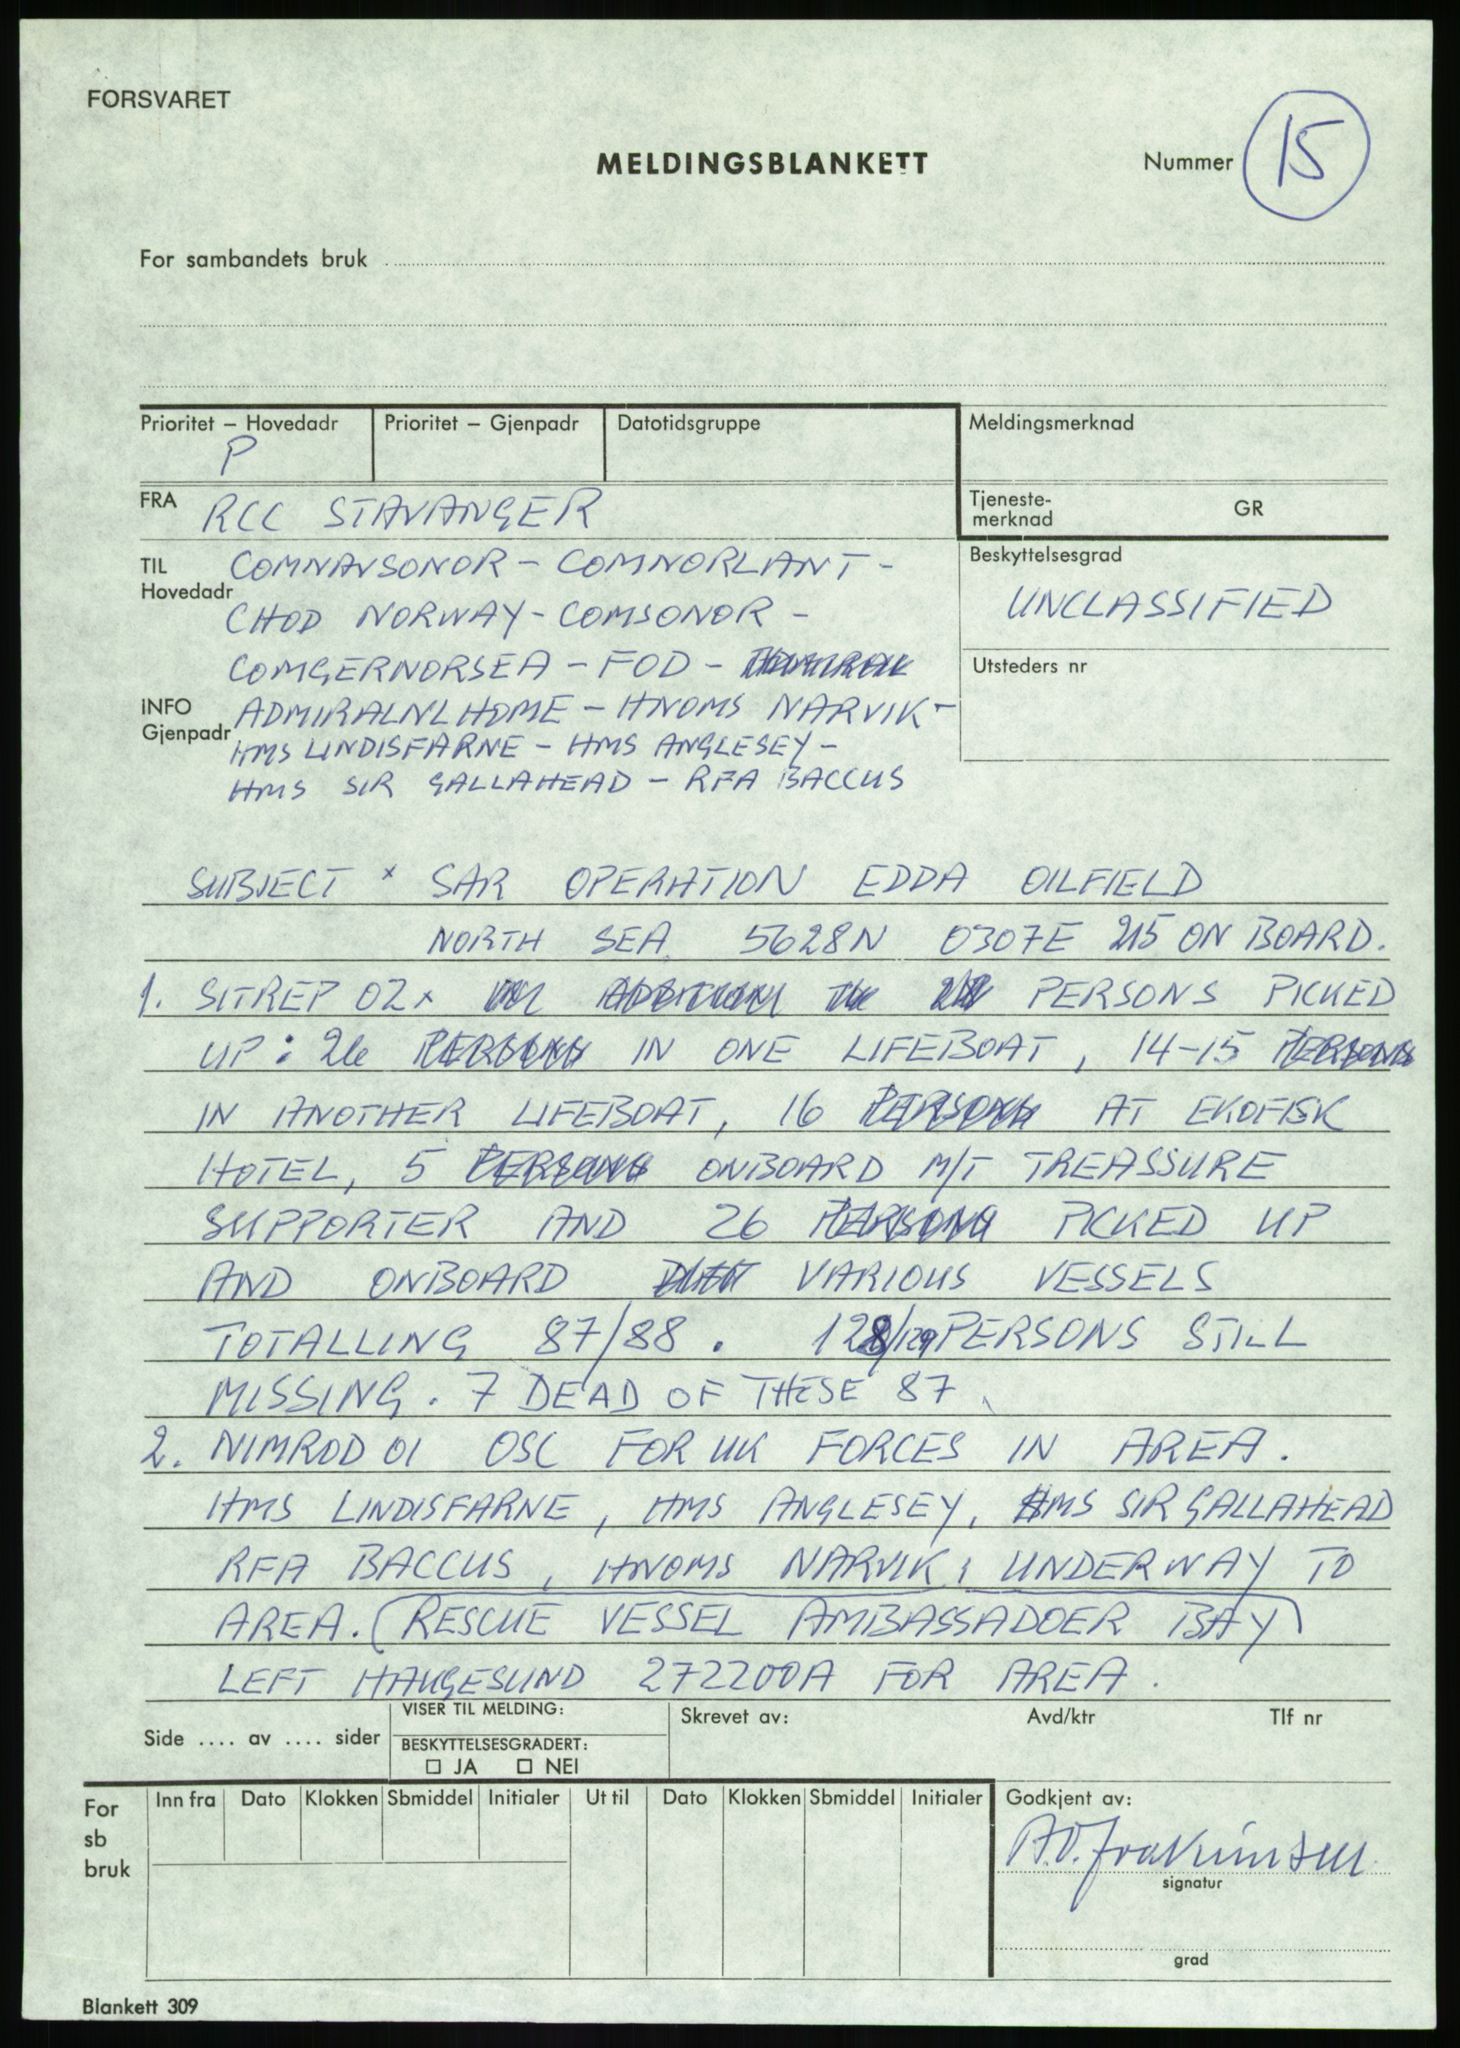 FORSVARET
MELDINGSBLANKETT
Nummer 15
For sambandets bruk
Prioritet – Hovedadr Prioritet – Gjenpadr Datotidsgruppe Meldingsmerknad
P
FRA RCC STAVANGER
Tjeneste-
merknad GR
TIL
Hovedadr
COMNAVSONOR - COMNORLANT -
CHOD NORWAY - COMSONOR -
COMGERNORSEA - FOD -
Beskyttelsesgrad
UNCLASSIFIED
Utsteders nr
INFO
Gjenpadr
ADMIRALNLHOME - HNOMS NARVIK -
HMS LINDISFARNE - HMS ANGLESEY -
HMS SIR GALLAHEAD - RFA BACCUS
SUBJECT x SAR OPERATION EDDA OILFIELD
NORTH SEA 5628N 0307E 215 ON BOARD.
1. SITREP 02x PERSONS PICKED
UP: 26 PERSONS IN ONE LIFEBOAT, 14-15 PERSONS
IN ANOTHER LIFEBOAT, 16 PERSONS AT EKOFISK
HOTEL, 5 PERSONS ONBOARD M/T TREASSURE
SUPPORTER AND 26 PERSONS PICKED UP
AND ONBOARD VARIOUS VESSELS
TOTALLING 87/88. 128/129 PERSONS STILL
MISSING. 7 DEAD OF THESE 87.
2. NIMROD 01 OSC FOR UK FORCES IN AREA.
HMS LINDISFARNE, HMS ANGLESEY, HMS SIR GALLAHEAD
RFA BACCUS, HNOMS NARVIK, UNDERWAY TO
AREA. (RESCUE VESSEL AMBASSADOER BAY)
LEFT HAUGESUND 272200A FOR AREA.
Side .... av .... sider
VISER TIL MELDING:
BESKYTTELSESGRADERT:
JA NEI
Skrevet av: Avd/ktr Tlf nr
For
sb
bruk
Inn fra Dato Klokken Sbmiddel Initialer Ut til Dato Klokken Sbmiddel Initialer
Godkjent av:
signatur
grad
Blankett 309